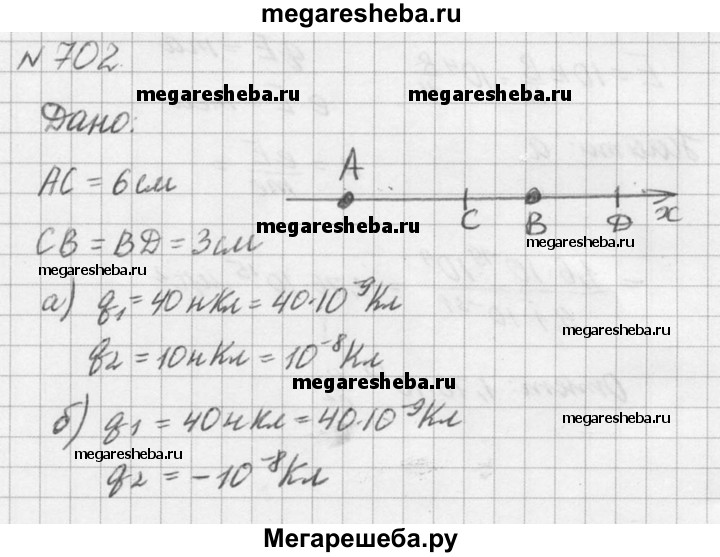 megaresheba.ru
N 702.
megaresheba.ru megaresheba.ru
Дано:
A
AC = 6 см
C B D x
megaresheba.ru
CB = BD = 3 см
megaresheba.ru
а) q₁ = 40 нКл = 40·10⁻⁹ Кл
megaresheba.ru
q₂ = 10 нКл = 10⁻⁸ Кл
megaresheba.ru
б) q₁ = 40 нКл = 40·10⁻⁹ Кл
megaresheba.ru
megaresheba.ru
q₂ = -10⁻⁸ Кл
Мегарешеба.ру